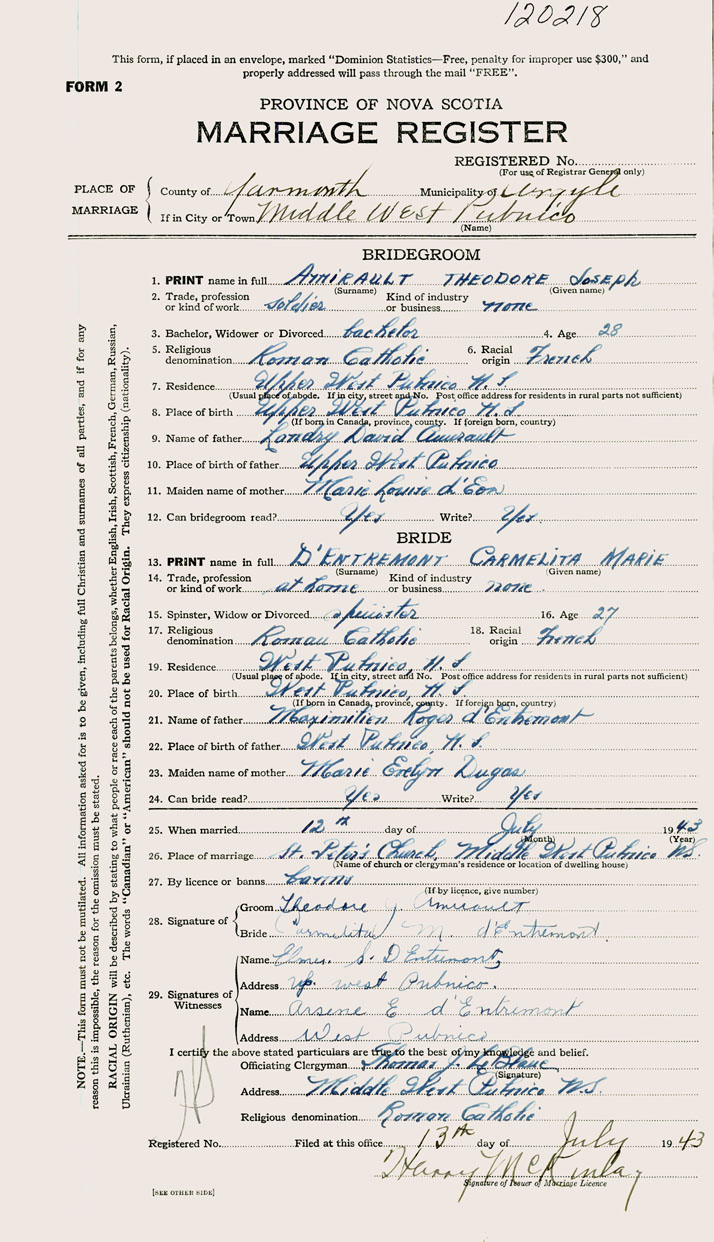 120218
This form, if placed in an envelope, marked "Dominion Statistics—Free, penalty for improper use $300," and
properly addressed will pass through the mail "FREE".
FORM 2
PROVINCE OF NOVA SCOTIA
MARRIAGE REGISTER
REGISTERED No.
(For use of Registrar General only)
PLACE OF MARRIAGE
County of Yarmouth Municipality of Argyle
If in City or Town Middle West Pubnico
(Name)
BRIDEGROOM
1. PRINT name in full AMIRAULT THEODORE JOSEPH
(Surname) (Given name)
2. Trade, profession or kind of work soldier Kind of industry or business none
3. Bachelor, Widower or Divorced bachelor 4. Age 28
5. Religious denomination Roman Catholic 6. Racial origin French
7. Residence Upper West Pubnico N.S
(Usual place of abode. If in city, street and No. Post office address for residents in rural parts not sufficient)
8. Place of birth Upper West Pubnico N.S.
(If born in Canada, province, county. If foreign born, country)
9. Name of father Landry David Amirault
10. Place of birth of father Upper West Pubnico
11. Maiden name of mother Marie Louise d'Eon
12. Can bridegroom read? Yes Write? Yes
BRIDE
13. PRINT name in full D'ENTREMONT CARMELITA MARIE
(Surname) (Given name)
14. Trade, profession or kind of work at home Kind of industry or business none
15. Spinster, Widow or Divorced spinster 16. Age 27
17. Religious denomination Roman Catholic 18. Racial origin French
19. Residence West Pubnico, N.S
(Usual place of abode. If in city, street and No. Post office address for residents in rural parts not sufficient)
20. Place of birth West Pubnico, N.S.
(If born in Canada, province, county. If foreign born, country)
21. Name of father Maximilien Roger d'Entremont
22. Place of birth of father West Pubnico, N.S.
23. Maiden name of mother Marie Evelyn Dugas
24. Can bride read? Yes Write? Yes
25. When married 12th day of July 1943
(Month) (Year)
26. Place of marriage St. Peter's Church, Middle West Pubnico N.S.
(Name of church or clergyman's residence or location of dwelling house)
27. By licence or banns banns
(If by licence, give number)
28. Signature of
Groom Theodore J Amirault
Bride Carmelita M. d'Entremont
29. Signatures of Witnesses
Name S. D'Entremont
Address up. west Pubnico.
Name Arsene E d'Entremont
Address West Pubnico
I certify the above stated particulars are true to the best of my knowledge and belief.
Officiating Clergyman Thomas J. LeBlanc
(Signature)
Address Middle West Pubnico N.S.
Religious denomination Roman Catholic
Registered No. Filed at this office 13th day of July 1943
Harry McKinlay
Signature of Issuer of Marriage Licence
[SEE OTHER SIDE]
NOTE.—This form must not be mutilated. All information asked for is to be given, including full Christian and surnames of all parties, and if for any
reason this is impossible, the reason for the omission must be stated.
RACIAL ORIGIN will be described by stating to what people or race each of the parents belongs, whether English, Irish, Scottish, French, German, Russian,
Ukrainian (Ruthenian), etc. The words "Canadian" or "American" should not be used for Racial Origin. They express citizenship (nationality).